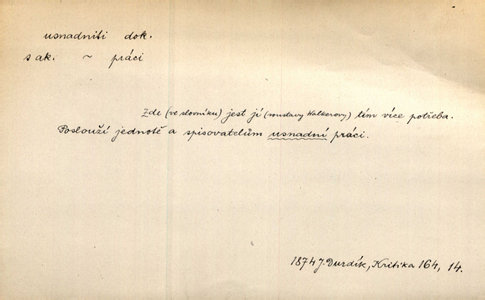 usnadniti dok.
s ak. ~ práci
Zde (ve slovníku) jest jí (soustavy Kalkerovy) tím více potřeba.
Poslouží jednotě a spisovatelům usnadní práci.
1874 J. Durdík, Kritika 164, 14.